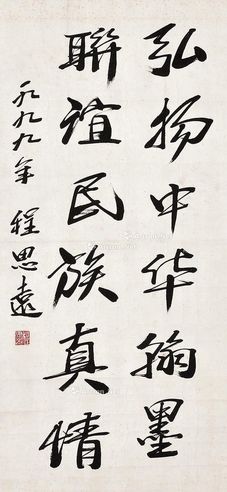 弘扬中华翰墨
联谊民族真情
一九九九年 程思远